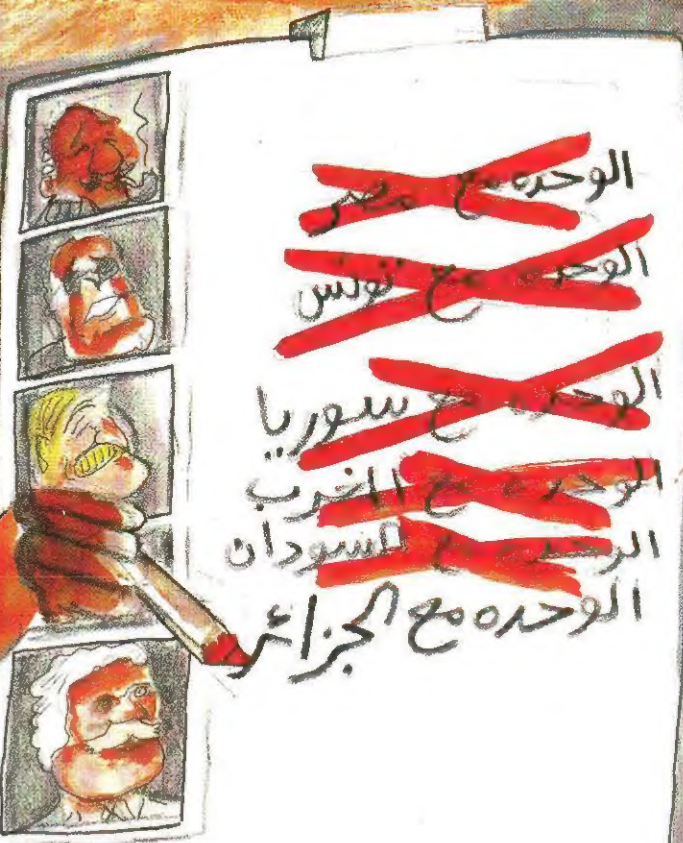 الوحده مع مصر
الوحده مع تونس
الوحده مع سوريا
الوحده مع المغرب
الوحده مع السودان
الوحده مع الجزائر